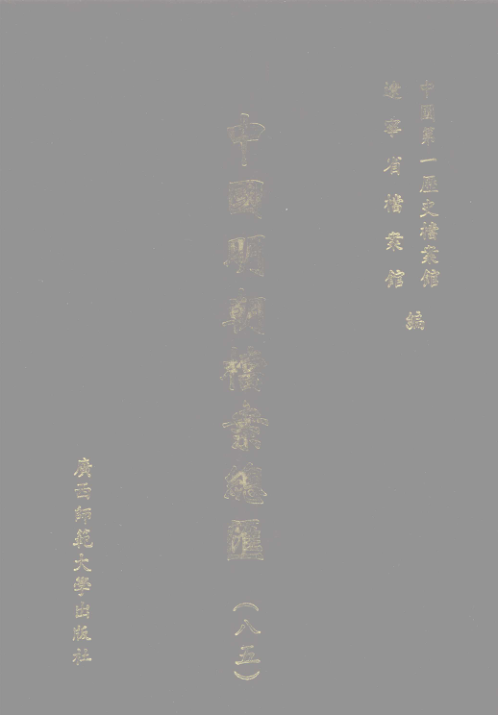 中國第一歷史檔案館
遼寧省檔案館
編
中國明朝檔案總匯
(八五)
廣西師範大學出版社